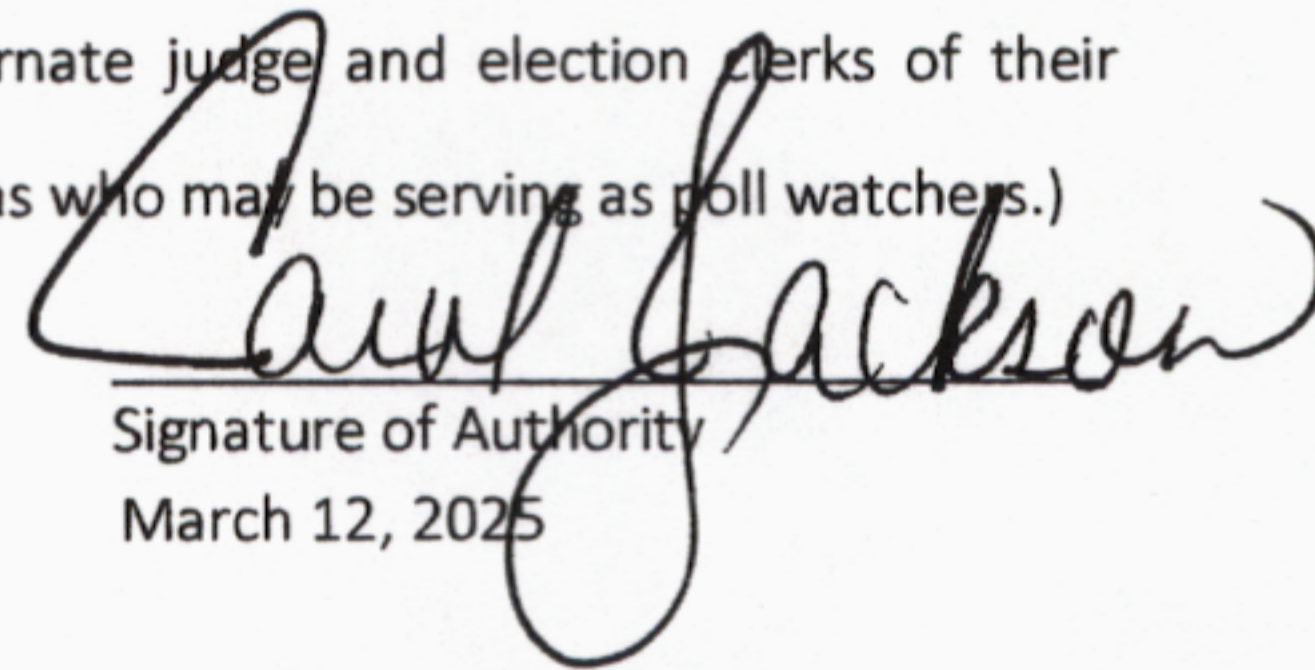 rnate judge and election clerks of their
as who may be serving as poll watchers.)
Carol Jackson
Signature of Authority
March 12, 2025